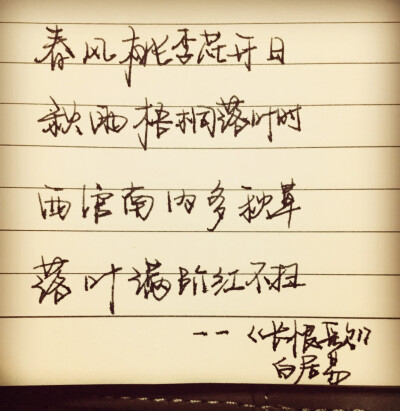 春风桃李花开日
秋雨梧桐落叶时
西宫南内多秋草
落叶满阶红不扫
——《长恨歌》
白居易